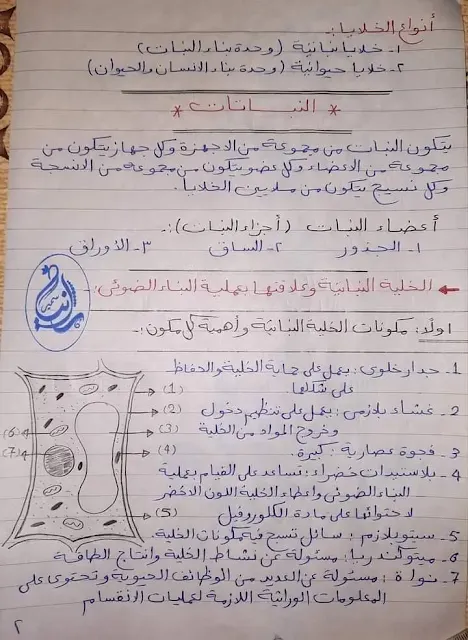 أنواع الخلايا :-
١- خلايا نباتية (وحدة بناء النبات)
٢- خلايا حيوانية (وحدة بناء الانسان والحيوان)
* النباتات *
يتكون النبات من مجموعة من الاجهزة وكل جهاز يتكون من
مجموعة من الاعضاء وكل عضو يتكون من مجموعة من الانسجة
وكل نسيج يتكون من ملايين الخلايا.
أعضاء النبات (أجزاء النبات) :-
١- الجذور ٢- الساق ٣- الأوراق
← الخلية النباتية وعلاقتها بعملية البناء الضوئى :
اولًا : مكونات الخلية النباتية وأهمية كل مكون :-
1- جدار خلوى : يعمل على حماية الخلية والحفاظ
على شكلها.
2- غشاء بلازمى : يعمل على تنظيم دخول
وخروج المواد من الخلية
3- فجوة عصارية : كبيرة.
4- بلاستيدات خضراء : تساعد على القيام بعملية
البناء الضوئى واعطاء الخلية اللون الاخضر
لاحتوائها على مادة الكلوروفيل
5- سيتوبلازم : سائل تسبح فيه مكونات الخلية.
6- ميتوكندريا : مسئولة عن نشاط الخلية وانتاج الطاقة
7- نواة : مسئولة عن العديد من الوظائف الحيوية وتحتوى على
المعلومات الوراثية اللازمة لعمليات الانقسام
(1)
(2)
(3)
(4)
(5)
(6)
(7)
٢